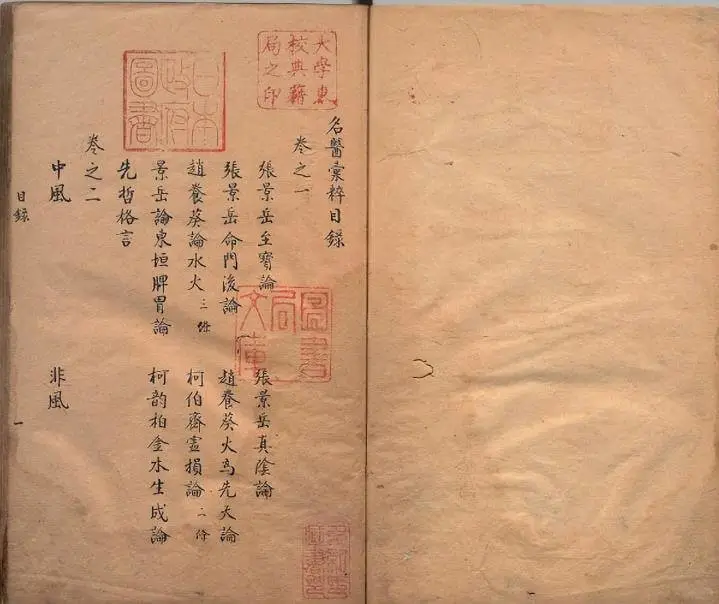 大學東
校典藉
局之印
日本
政府
圖書
名醫彙粹目錄
卷之一
張景岳至寶論 張景岳真陰論
張景岳命門後論 趙養葵火為先天論
趙養葵論水火三條 柯伯齋虛損論二條
景岳論東垣脾胃論 柯韵柏金水生成論
先哲格言
卷之二
中風 非風
目錄 一
圖書
局
文庫